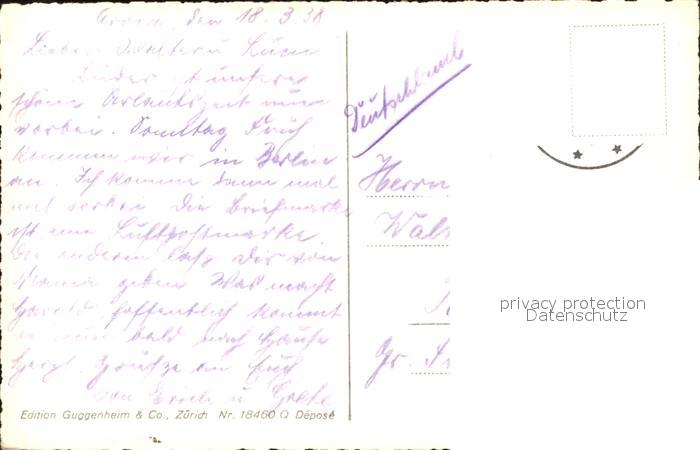 Arosa, den 18.3.38
Lieber Walter u
Leider ist unsere
schöne Urlaubszeit nun
vorbei. Sonntag Früh
kommen wir in Berlin
an. Ich komme dann mal
mit vorbei. Die Briefmarke
ist eine Luftpostmarke.
Die anderen laß dir von
Mama geben. Was macht
Harald, hoffentlich kommt
er nun bald nach Hause
Herzl. Grüße an Euch
von Erich u Grete
Edition Guggenheim & Co., Zürich Nr. 18460 Q Déposé
Deutschland
Herrn
Walt
Gr.
privacy protection
Datenschutz